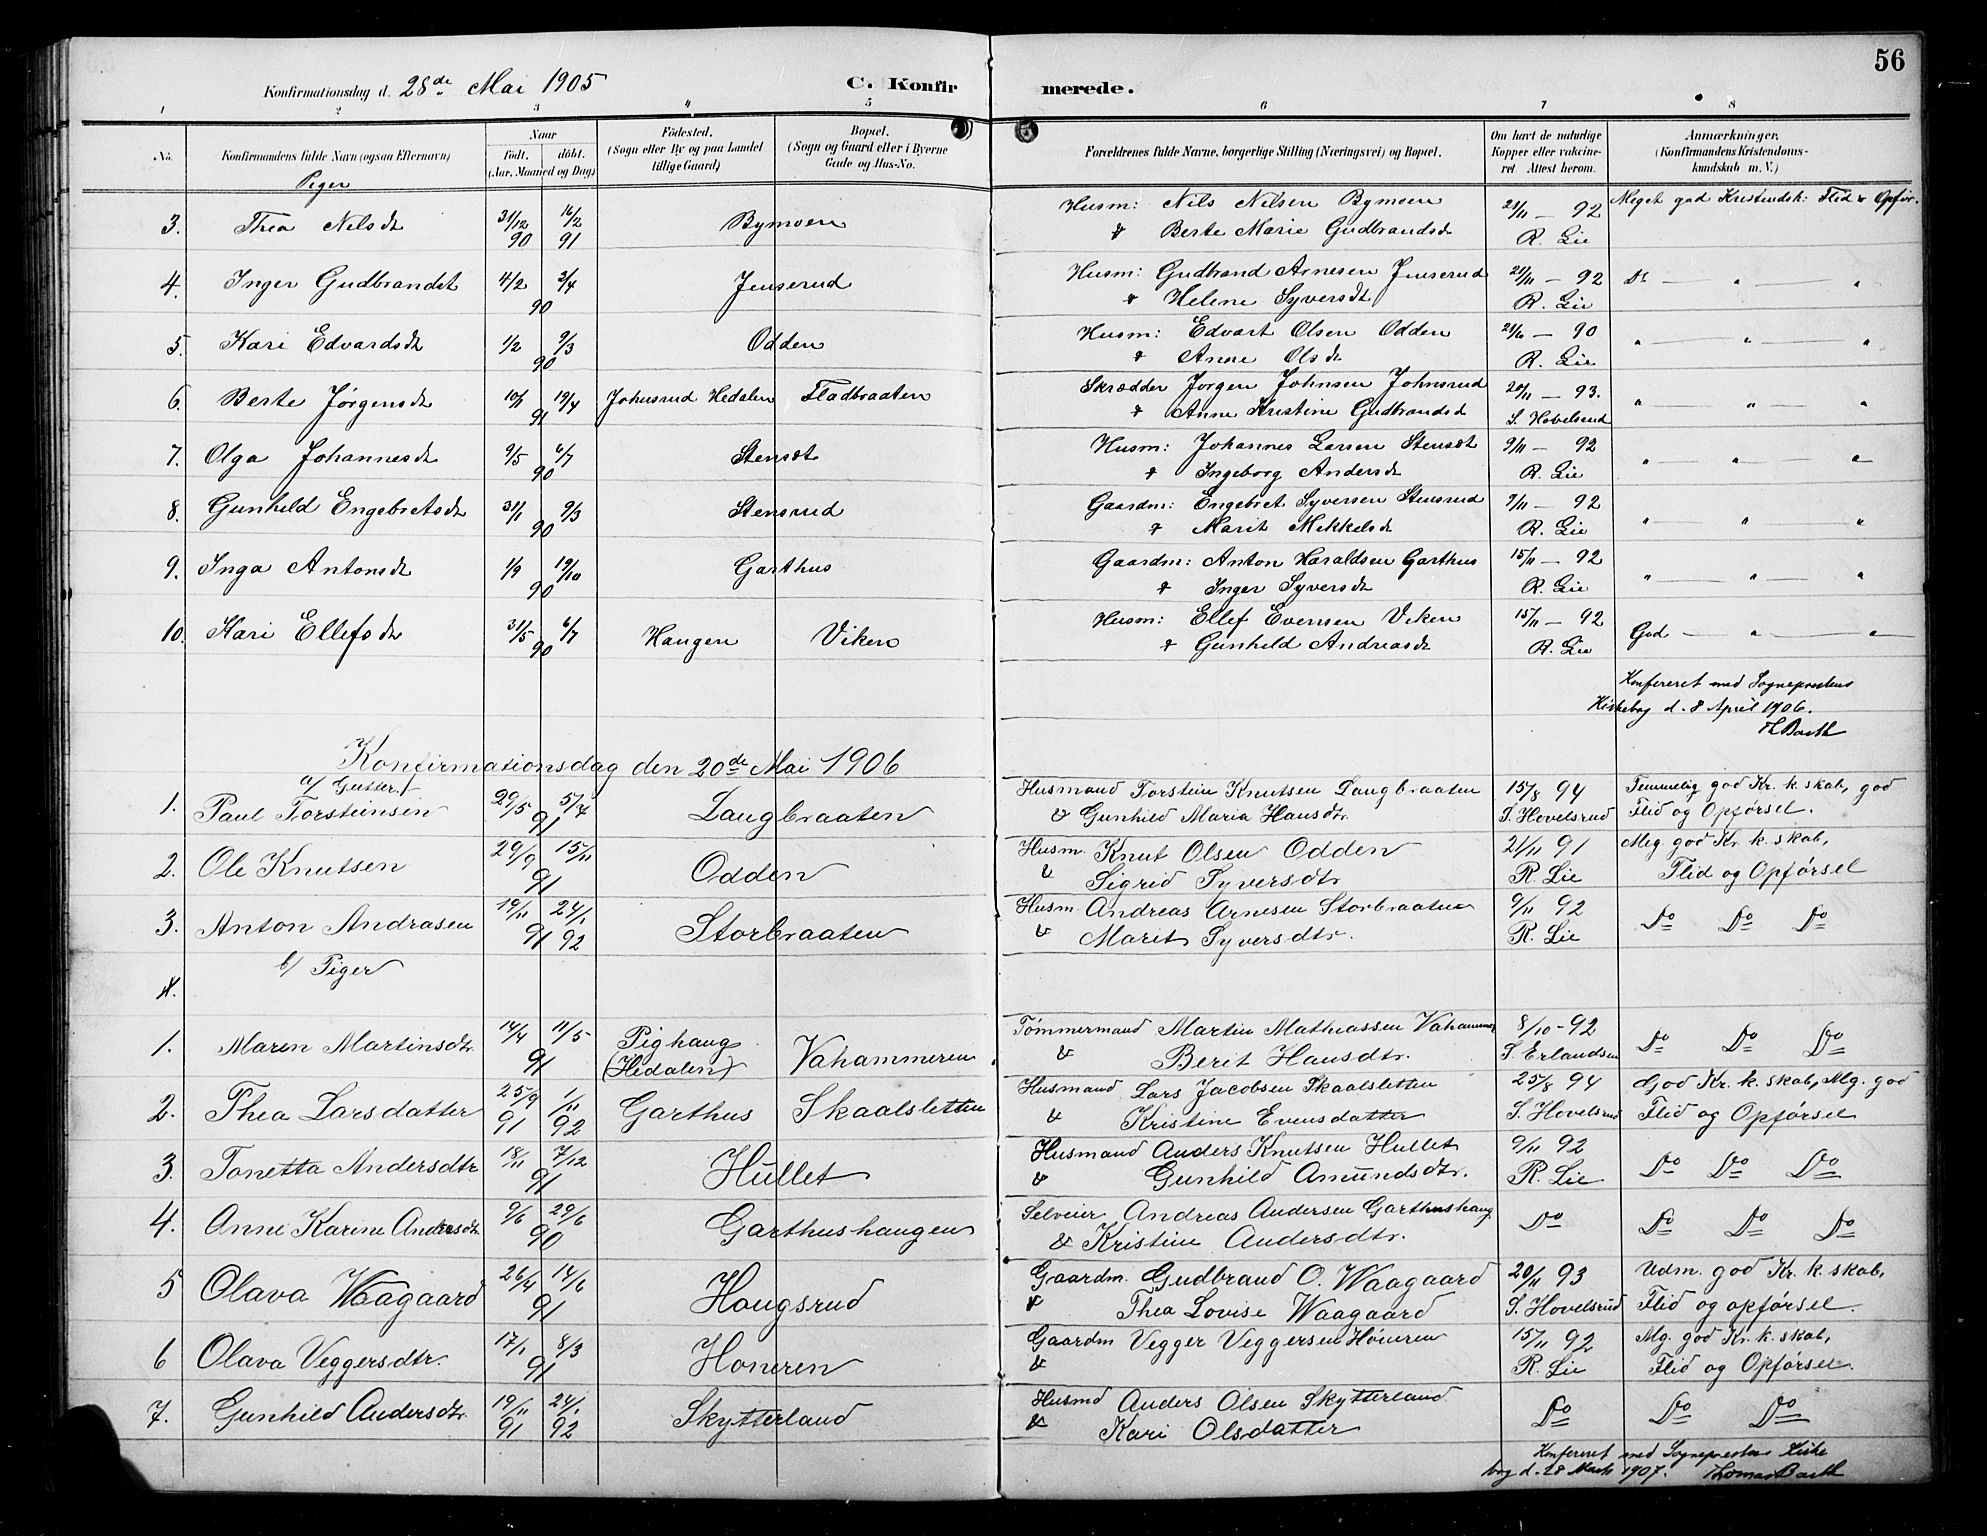 56
Konfirmationsdag d. 28de Mai 1905 C. Konfirmerede.
1 2 3 4 5 6 7 8
No. Konfirmandens fulde Navn (ogsaa Efternavn) Naar født. døbt. (Aar, Maaned og Dag) Fødested. (Sogn eller By og paa Landet tillige Gaard) Bopæl. (Sogn og Gaard eller i Byerne Gade og Hus-No. Forældrenes fulde Navne, borgerlige Stilling (Næringsvei) og Bopæl. Om havt de naturlige Kopper eller vakcineret Attest herom. Anmærkninger. (Konfirmandens Kristendomskundskab m. V.)
Piger
3. Thea Nilsdt 31/12 90 16/2 91 Bymoen Husm: Nils Nilsen Bymoen 21/11 — 92 Meget god Kristendsk: Flid & Opfør.
& Berte Marie Gudbrandsdt R. Lie
4. Inger Gudbrandsdt 4/2 2/4 90 Jenserud Husm: Gudbrand Arnesen Jenserud 21/11 — 92 Do — " — "
& Helene Syversdt R. Lie
5. Kari Edvardsdt 1/2 9/3 90 Odden Husm: Edvart Olsen Odden — 90 " — " — "
& Anne Olsdt R. Lie
6. Berte Jørgensdt 10/1 19/4 91 Johnsrud Hedalen Fladbraaten Skrædder Jørgen Johnsen Johnsrud 20/11 — 93. " " — "
& Anne Kristine Gudbrandsd S. Hovelsrud
7. Olga Johannesdt 9/5 6/7 90 Stensæt Husm: Johannes Larsen Stensæt 9/11 — 92 " — " — "
& Ingeborg Andersdt R. Lie
8. Gunhild Engebretsdt 31/1 9/3 90 Stensrud Gaardm: Engebret Syversen Stensrud 9/11 — 92 " " "
& Marit Mikkelsdt R. Lie
9. Inga Antonsdt 1/9 19/10 90 Garthus Gaardm: Anton Haraldsen Garthus 15/11 — 92 " — " — "
& Inger Syversdt R. Lie
10. Kari Ellefsdt 31/5 6/7 90 Haugen Viken Husm: Ellef Evensen Viken 15/11 — 92 God — " — "
& Gunhild Andreasdt R. Lie
Konfereret med Sogneprestens
Kirkebog d. 8 April 1906.
Th Barth
Konfirmationsdag den 20de Mai 1906
a/ Gutter/
1. Paul Torsteinsen 29/5 5/7 91 Laugbraaten Husmand Torstein Knutsen Laugbraaten 15/8 94 Temmelig god Kr. k. skab, god
& Gunhild Maria Hansdtr. S. Hovelsrud Flid og Opførsel.
2. Ole Knutsen 29/9 15/11 91 Odden Husm. Knut Olsen Odden 21/11 91 Meg. god Kr. k. skab,
& Sigrid Syversdtr R. Lie Flid og Opførsel
3. Anton Andrasen 19/11 91 24/1 92 Storbraaten Husm Andreas Arnesen Storbraaten 9/11 92 Do Do Do
& Marit Syversdtr. R. Lie
b/ Piger
1. Maren Martinsdtr. 14/4 11/5 91 Pighaug (Hedalen) Vahammeren Tømmermand Martin Mathiassen Vahammer 8/10 - 92 Do Do Do
& Berit Hansdtr. S. Erlandsen
2. Thea Larsdatter 25/9 91 1/11 92 Garthus Skaalsletten Husmand Lars Jacobsen Skaalsletten 25/8 94 God Kr. k. skab, Mg. god
& Kristine Evensdatter S. Hovelsrud Flid og Opførsel
3. Tonetta Andersdtr 18/11 7/12 91 Hullet Husmand Anders Knutsen Hullet 9/11 92 Do Do Do
& Gunhild Amundsdtr. R. Lie
4. Anne Karine Andersdt. 9/6 29/6 90 Garthushaugen Selveier Andreas Andersen Garthushaug Do Do Do Do
& Kristine Andersdtr.
5 Olava Waagaard 26/4 14/6 91 Haugsrud Gaardm. Gudbrand O. Waagaard 20/11 93 Udm. god Kr. k. skab,
& Thea Lovise Waagaard S. Hovelsrud Flid og opførsel.
6 Olava Veggersdtr. 17/1 8/3 91 Høneren Gaardm Vegger Veggersen Høneren 15/11 92 Mg. god Kr. k. skab,
& R. Lie Flid og Opførsel.
7. Gunhild Andersdtr. 19/11 91 24/1 92 Skytterland Husmd Anders Olsen Skytterland Do Do Do
& Kari Olsdatter
Konfereret med Sogneprestens Kirke
bog d. 28 Marts 1907. Thomas Barth